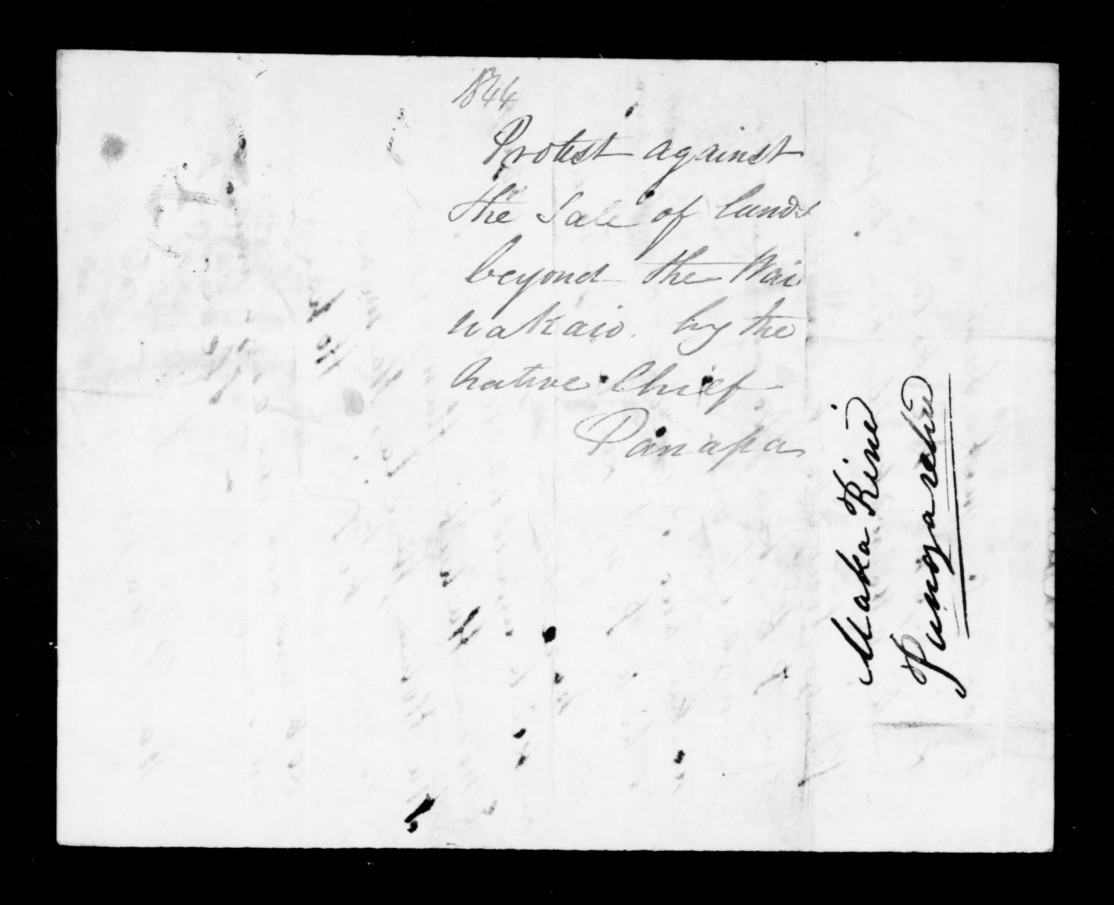 1844
Protest against
the Sale of lands
beyond the Wai
wakaio. by the
Native Chief
Panapa
Maka Kini
Pungarehu